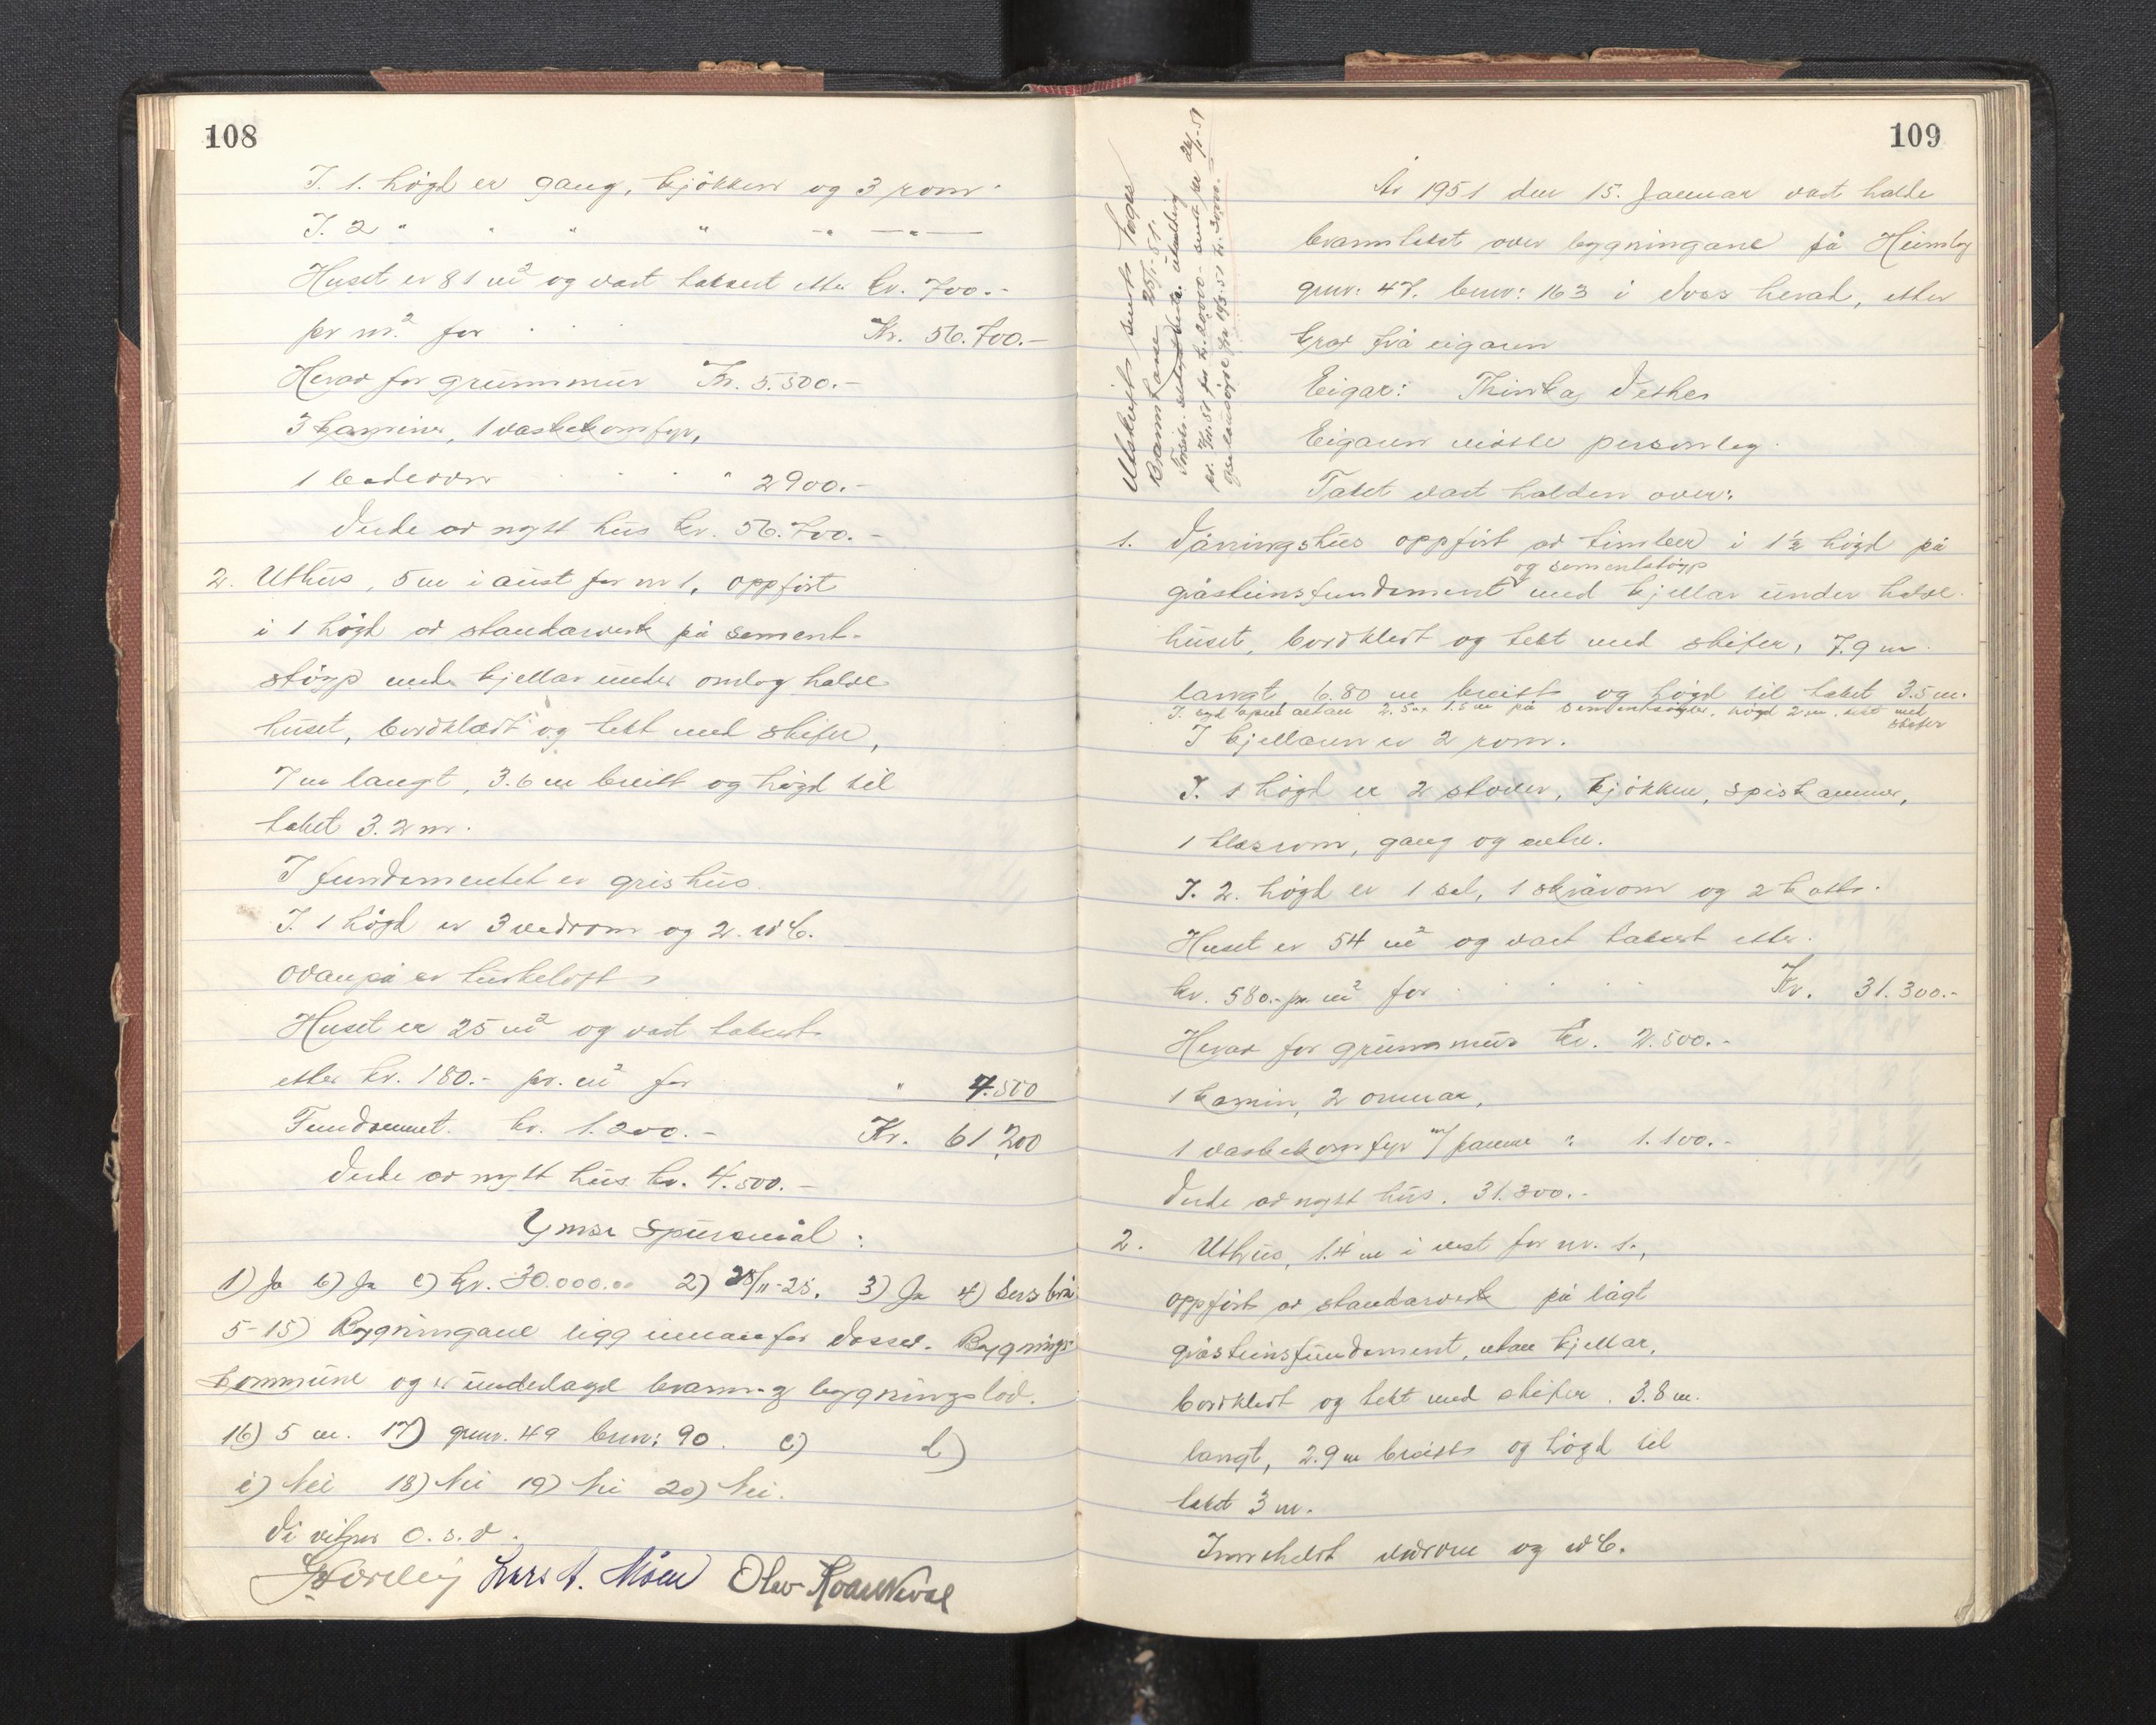 108
I. 1. högd er gang, kjökken og 3 rom.
I. 2 " " " " -"- -"-
Huset er 81 m² og vart taksert etter kr. 700.-
pr m.² for . . . Kr. 56.700.-
Herav for grunnmur Kr. 5.500.-
3 kaminer, 1 vaskekomfyr,
1 badeovn . . . " 2900.-
Verde av nytt hus kr. 56.700.-
2. Uthus, 5 m i aust for nr 1, oppfört
i 1 högd av standarverk på sement-
støyp med kjellar under omlag halve
huset, bordklædt og tekt med skifer,
7 m langt, 3.6 m breitt og högd til
taket 3.2 m.
I fundamentet er grishus.
I. 1 högd er 3 vedrom og 2. W C.
Ovanpå er turkeloft
Huset er 25 m² og vart taksert
etter kr. 180.- pr. m² for " 4.500
Fundament. kr. 1.200.- Kr. 61.200
Verde av nytt hus kr. 4.500.-
Ymse spursmål:
1) Ja b) Ja c) kr. 30.000.00 2) 28/11-25. 3) Ja 4) Sers brå
5-15) Bygningane ligg innanfor Vossev. Bygnings
kommune og er underlagd brann- og bygningslov.
16) 5 m. 17) gnr. 49 bnr: 90. c) d)
i) Nei 18) Nei 19) Nei 20) Nei.
Vi vitner o.s.v.
Lars A. Möen Olav
109
År 1951 den 15. Januar vart halde
branntakst over bygningane på Heimly
gnr: 47. bnr: 163 i Voss herad, etter
krav frå eigaren
Eigar:
Eigaren møtte personleg.
Takst vart halden over:
1. Våningshus oppfört av timber i 1 ½ högd på
og sementstøyp
gråsteinsfundament med kjellar under halve
huset, bordkledt og tekt med skifer, 7.9 m
langt, 6.80 m breitt og högd til taket 3.5 m.
altan 2.5 x 1.5 m på sementsöyler, högd 2 m, tekt med skifer
I kjellaren er 2 rom.
I. 1 högd er 2 stover, kjökken, spiskammer,
1 klesrom, gang og entre.
I. 2. högd er 1 sal, 1 skrårom og 2 kott.
Huset er 54 m² og vart taksert etter
kr. 580.- pr m² for . . . Kr. 31.300.-
Herav for grunnmur kr. 2.500.-
1 kamin, 2 omnar,
1 vaskekomfyr m/ panne " 1.100.-
Verde av nytt hus. 31.300.-
2. Uthus, 14 m i vest for nr. 1.,
oppfört av standarverk på lågt
gråsteinsfundament, utan kjellar,
bordkledt og tekt med skifer. 3.8 m.
langt, 2.9 m breitt og högd til
taket 3 m.
Innreidt vedrom og W C.
Utskrift sendt Voges
Brannkasse 25/1-51.